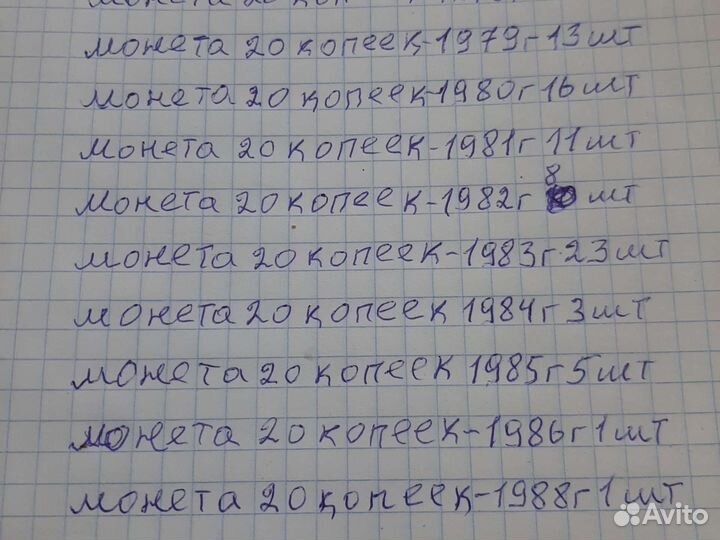 монета 20 коп
монета 20 копеек-1979г-13шт
монета 20 копеек-1980г 16шт
монета 20 копеек-1981г 11шт
монета 20 копеек-1982г 8 шт
монета 20 копеек-1983г 23шт
монета 20 копеек 1984г 3шт
монета 20 копеек 1985г 5шт
монета 20 копеек-1986г 1шт
монета 20 копеек-1988г 1шт
Avito